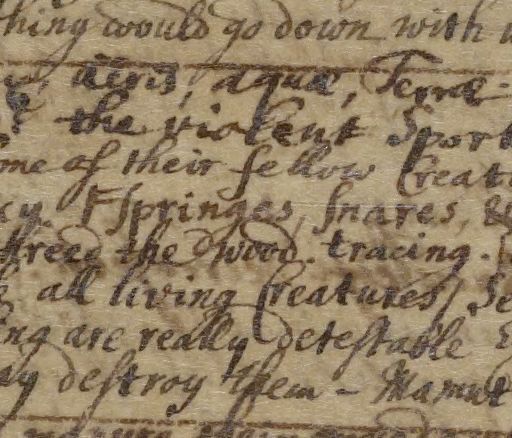 thing would go down with
aeris, aquae, Terrae -
the violent Sport
of their fellow Creat
Springes, snares, &
the wood. tracing.
all living Creatures, Se
ing are really detestable
ay destroy them - Mamut